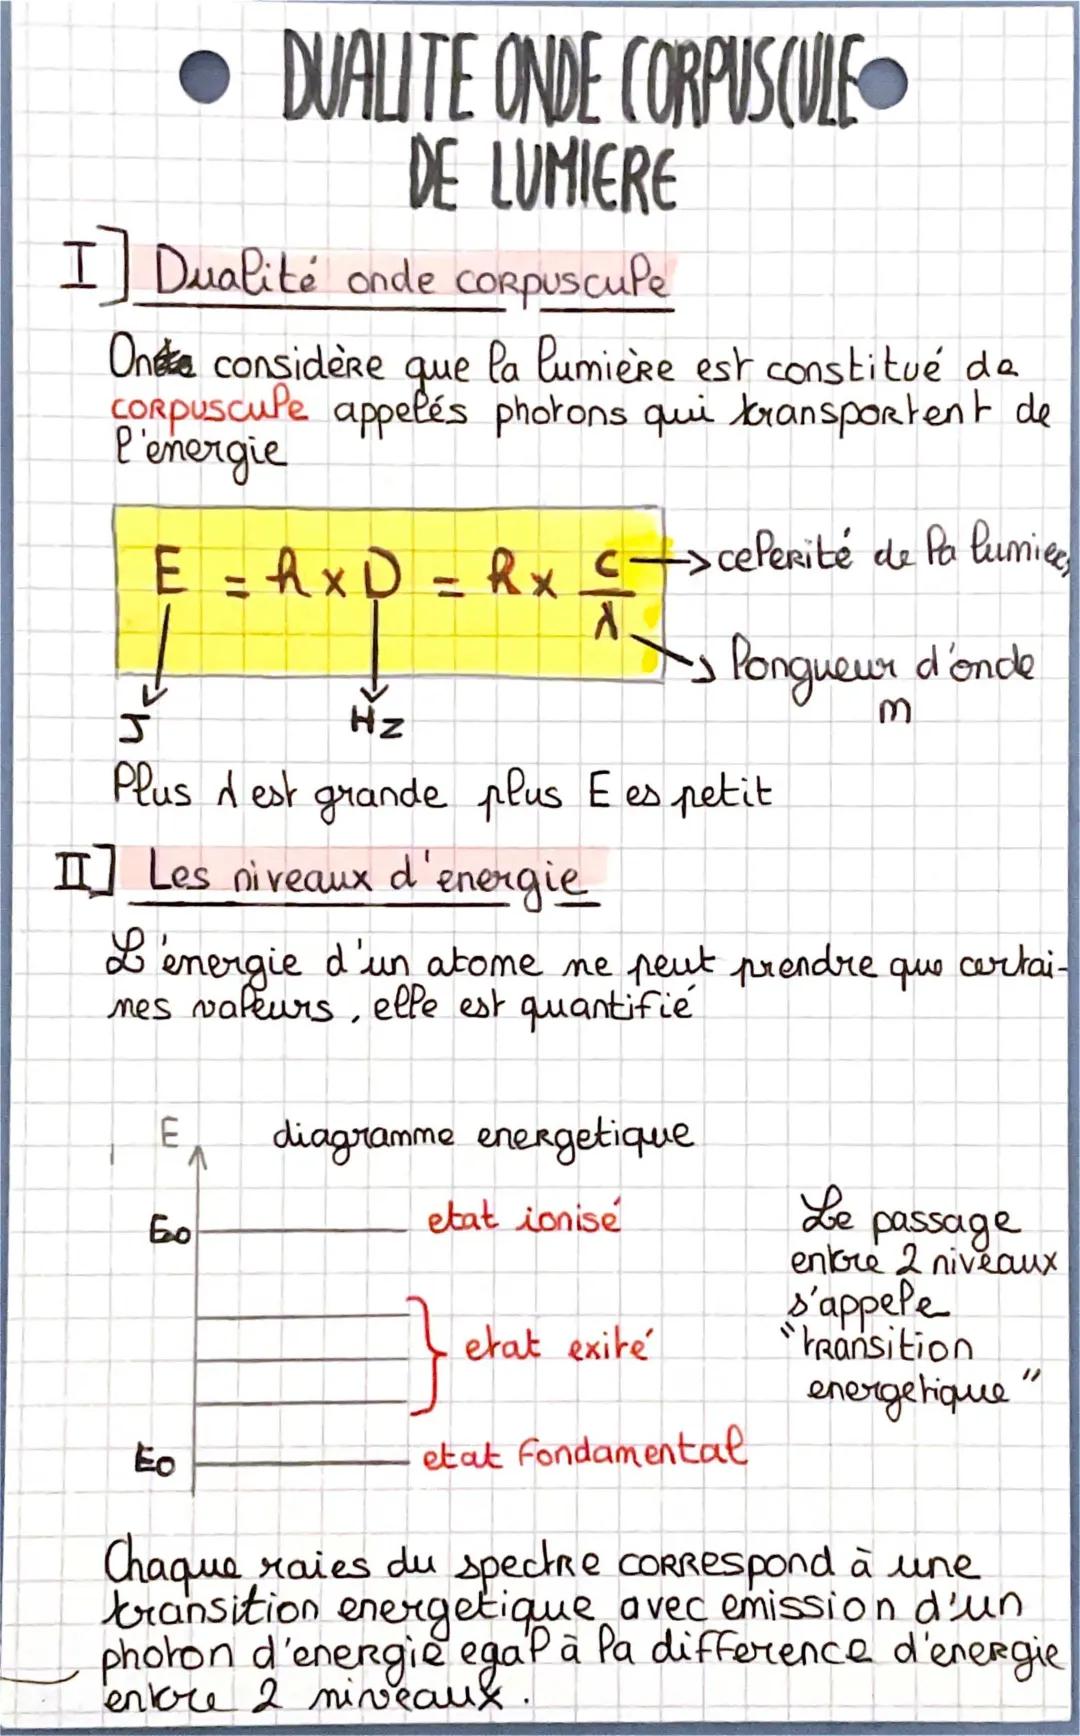 DUALITE ONDE CORPUSCULE
DE LUMIERE
I] Dualité onde corpuscule
On considère que la lumière est constitué de
corpuscule appelés photons qui transportent de
l'énergie
E = h x D = h x c/λ
→ celerité de la lumiere
→ longueur d'onde
m
J
Hz
Plus λ est grande plus E es petit
II] Les niveaux d'energie
L'énergie d'un atome ne peut prendre que certai-
nes valeurs, elle est quantifié
E
diagramme energetique
E∞
etat ionisé
etat exité
E0
etat fondamental
Le passage
entre 2 niveaux
s'appele
"transition
energetique"
Chaque raies du spectre correspond à une
transition energetique avec emission d'un
photon d'energie egal à la difference d'énergie
entre 2 niveaux.